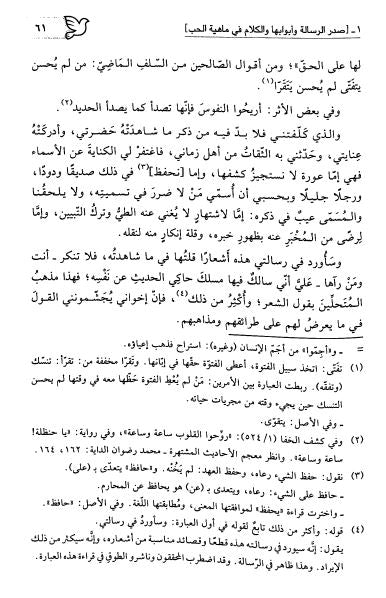 ١ ـ [صدر الرسالة وأبوابها والكلام في ماهية الحب]
٦١
لها على الحق»؛ ومن أقوال الصالحين من السلف الماضيّ: من لم يُحسن
يتفَتّى لم يُحسن يَتَقَرّا(١).
وفي بعض الأثر: أريحوا النفوسَ فإنّها تصدأ كما يصدأ الحديد(٢).
والذي كلّفتني فلا بدّ فيه من ذكر ما شاهدَتْهُ حَضرتي، وأدركَتْهُ
عِنايتي، وحدّثني به الثّقاتُ من أهل زماني، فاغتفر لي الكنايةَ عن الأسماء
فهي إمّا عورة لا نستجيزُ كشفها، وإما [نحفظ](٣) في ذلك صديقًا ودودًا،
ورجلًا جليلًا وبحسبي أن أُسمّي مَنْ لا ضررَ في تسميته، ولا يلحقُنا
والمُسَمّى عيبٌ في ذكره: إمَّا لاشتهارٍ لا يُغني عنه الطيُّ وتركُ التّبيين، وإمَّا
لِرضًى من المُخْبَرِ عنه بظهورِ خبره، وقلة إنكارٍ منه لنقله.
وسَأُورد في رسالتي هذه أشعارًا قلتُها في ما شاهدتُه، فلا تنكر ـ أنتَ
ومَنْ رآها ـ عَليَّ أنّي سالكٌ فيها مسلكَ حاكي الحديثِ عن نَفْسِه؛ فهذا مذهبُ
المُتَحلِّينَ بقول الشعر؛ وأُكْثِرُ من ذلك(٤)، فإنَّ إخواني يُجَشّمونني القولَ
في ما يعرضُ لهم على طرائقهم ومذاهبهم.
= ـ و«أجِمّوا» من أجَمَّ الإنسان (وغيره): استراح فذهب إعياؤه.
(١) تفَتّى: اتخذ سبيل الفتوة، أعطى الفتوّة حقَّها في إبّانها. وتقرّا مخففة من: تقرّأ: تنسّك
(وتفقّه). ربطت العبارة بين الأمرين: مَنْ لم يُعْطِ الفتوة حَظّها معه في وقتها لم يحسن
التنسك حين يجيء وقته من مجريات حياته.
ـ وفي الأصل: يتقرّى.
(٢) وفي كشف الخفا (١/ ٥٢٤): «روِّحوا القلوب ساعة وساعة»، وفي رواية: «يا حنظلة!
ساعة وساعة». وانظر معجم الأحاديث المشتهرة ـ محمد رضوان الداية: ١٦٢، ١٦٤.
(٣) نقول: حفظ الشيء رعاه، وحفظ العهد: لم يَخُنْه. و«حافظ» يتعدّى بـ (على).
ـ حافظ على الشيء: رعاه، ويتعدى بـ (عن) هو يحافظ عن المحارم.
ـ واخترت قراءة «يحفظ» لموافقتها المعنى، ومُطابقتها اللّغة. وفي الأصل: «حافظ».
(٤) قوله: وأكثر من ذلك تابعٌ لقوله في أول العبارة: وسأوردُ في رسالتي.
يقول: إنّه سيورد في رسالته هذه قِطعًا وقصائد مناسبة من أشعاره، وإنّه سيكثر من ذلك
الإيراد. وهذا ظاهر في الرّسالة. وقد اضطرب المحققون وناشرو الطوقِ في قراءة هذه العبارة.